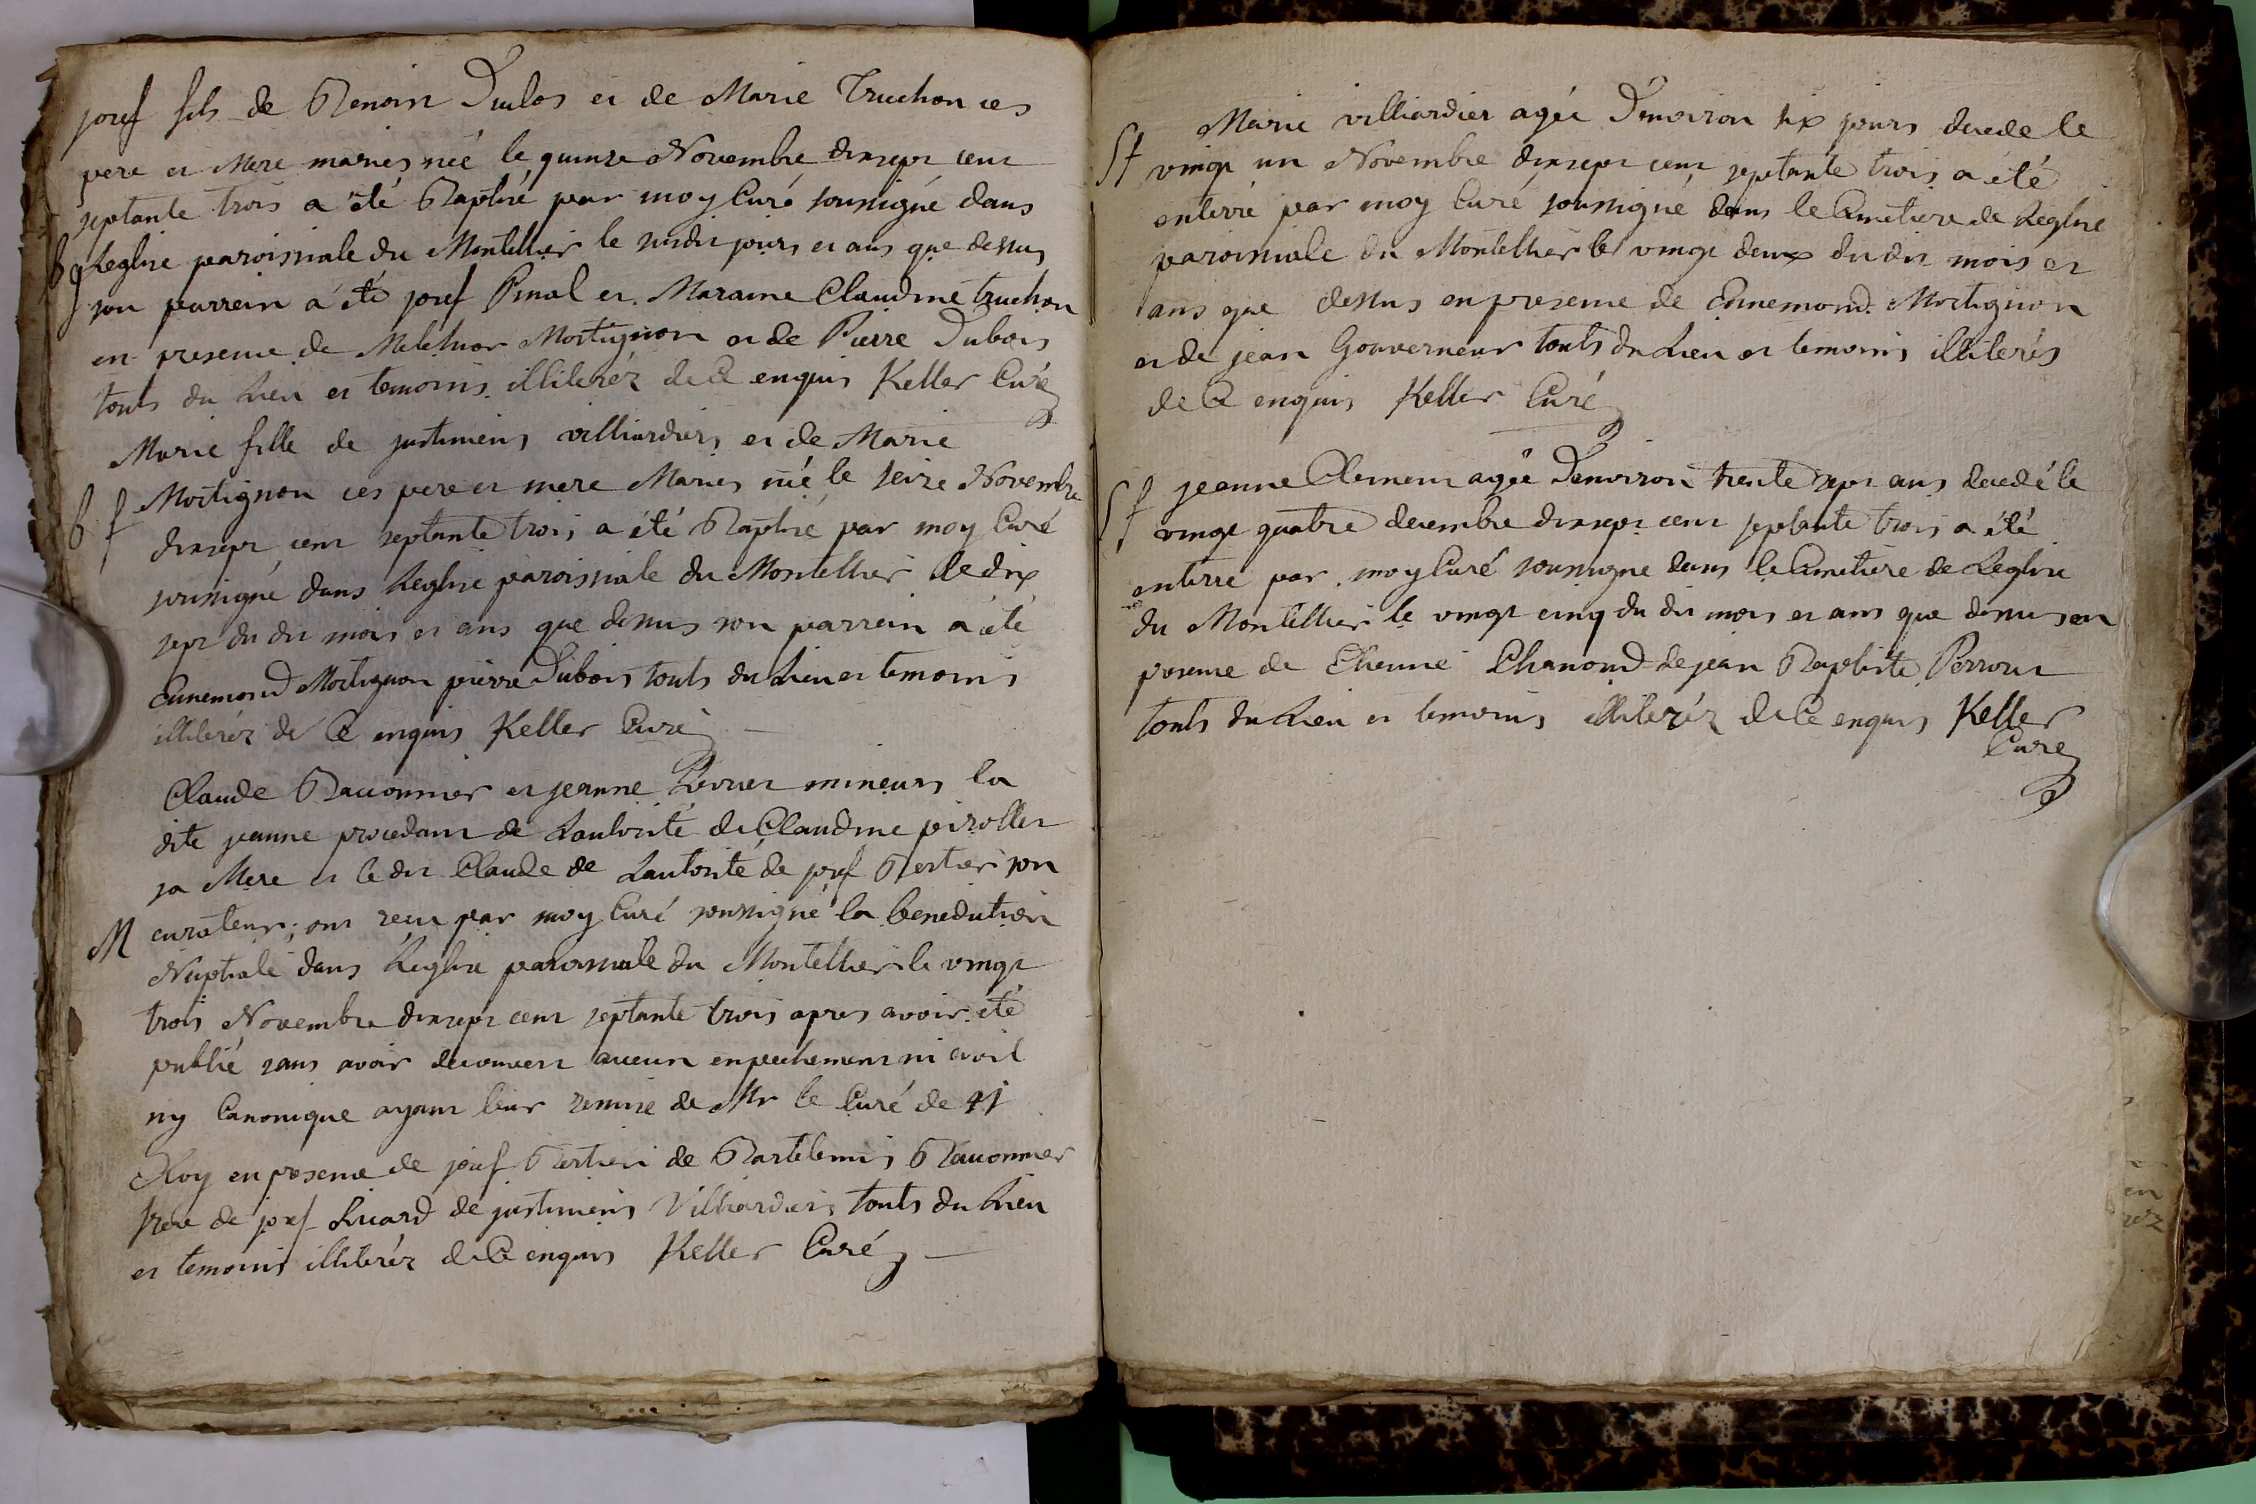 josef fils de Benoist Duclos et de Marie Truchon ces
pere et Mere mariés née le quinze Novembre dixsept cent
septante trois a été Baptisé par moy Curé soussigné dans
bg Leglise paroissiale du Montellier le susdit jours et ans que dessus
son parrein a été josef Pinal et Maraine Claudine truchon
en presence de Melchior Mortignon et de Pierre Dubois
touts du Lieu et temoins illiterér de ce enquis Keller Curé
Marie fille de justiniens villiardiers et de Marie
bf Mortignon ces pere et mere Mariés née le seize Novembre
dixsept cent septante trois a été Baptisé par moy Curé
soussigné dans Leglise paroissiale du Montellier le dix
sept du dit mois et ans que dessus son parrein a été
Ennemond Mortignon pierre Dubois touts du Lieu et temoins
illiterér de ce enquis Keller Curé
Claude Bauonnier et jeanne mineurs la
dite jeanne procedant de Lautorité de Claudine pirollet
sa Mere et le dit Claude de Lautorité de josef Bertier son
M curateur; ont recu par moy Curé soussigné la benediction
Nuptiale dans Leglise paroissiale du Montellier le vingt
trois Novembre dixsept cent septante trois apres avoir été
publié sans avoir decouvert aucun enpechement ni civil
ny Canonique ayant leur remise de Mr le Curé de st
Eloy en presence de josef Bertier de Bartelemis Bauonnier
frere de josef Luard de justiniens Villiardiers touts du Lieu
et temoins illiterér de ce enquis Keller Curé
Marie villiardier agée D'enoiron six jours decede le
Sf vingt un Novembre dixsept cent septante trois a été
enterré par moy Curé soussigné dans le Cimetiere de Leglise
paroissiale du Montellier le vingt deux du dit mois et
ans que dessus en presence de Ennemond Mortignon
et de jean Gouverneur touts du Lieu et temoins illiterés
de ce enquis Keller Curé
Sf jeanne Clement agée Denoiron trente sept ans decedé le
vingt quatre decembre dixsept cent septante trois a été
enterré par moy Curé soussigné dans le Cimetiere de Leglise
du Montellier le vingt cinq du dit mois et ans que dessus en
presence de Etienne Chanond de jean Baptiste Perrout
touts du Lieu et temoins illiterér de ce enquis Keller
Curé